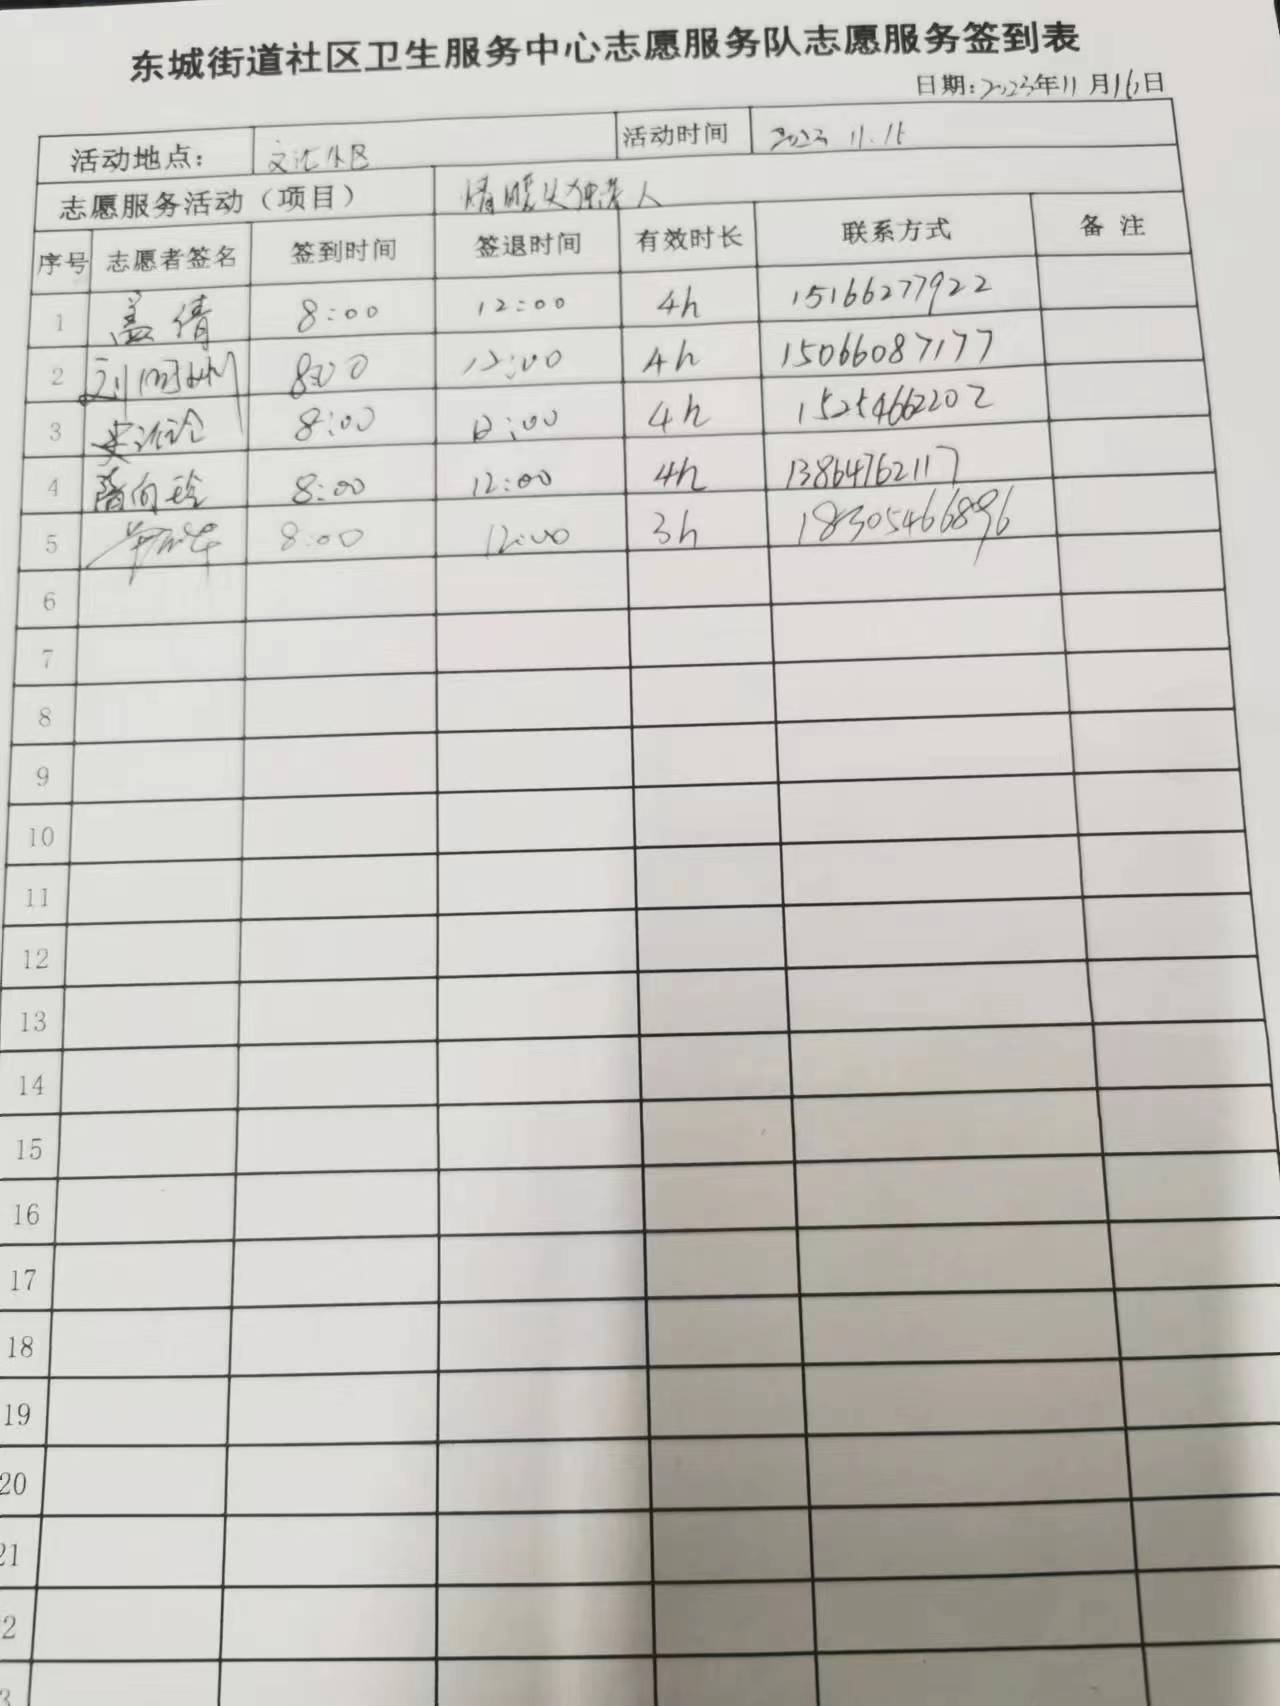 东城街道社区卫生服务中心志愿服务队志愿服务签到表
日期:2023年11月16日
活动地点: 文汇小区 活动时间 2023 11.15
志愿服务活动（项目） 情暖失独老人
序号 志愿者签名 签到时间 签退时间 有效时长 联系方式 备注
1 盖倩 8:00 12:00 4h 15166277922
2 刘 8:00 12:00 4h 15066087177
3 8:00 12:00 4h 15254662202
4 隋向玲 8:00 12:00 4h 13864762117
5 8:00 12:00 3h 18305466896
6
7
8
9
10
11
12
13
14
15
16
17
18
19
20
21
2
3